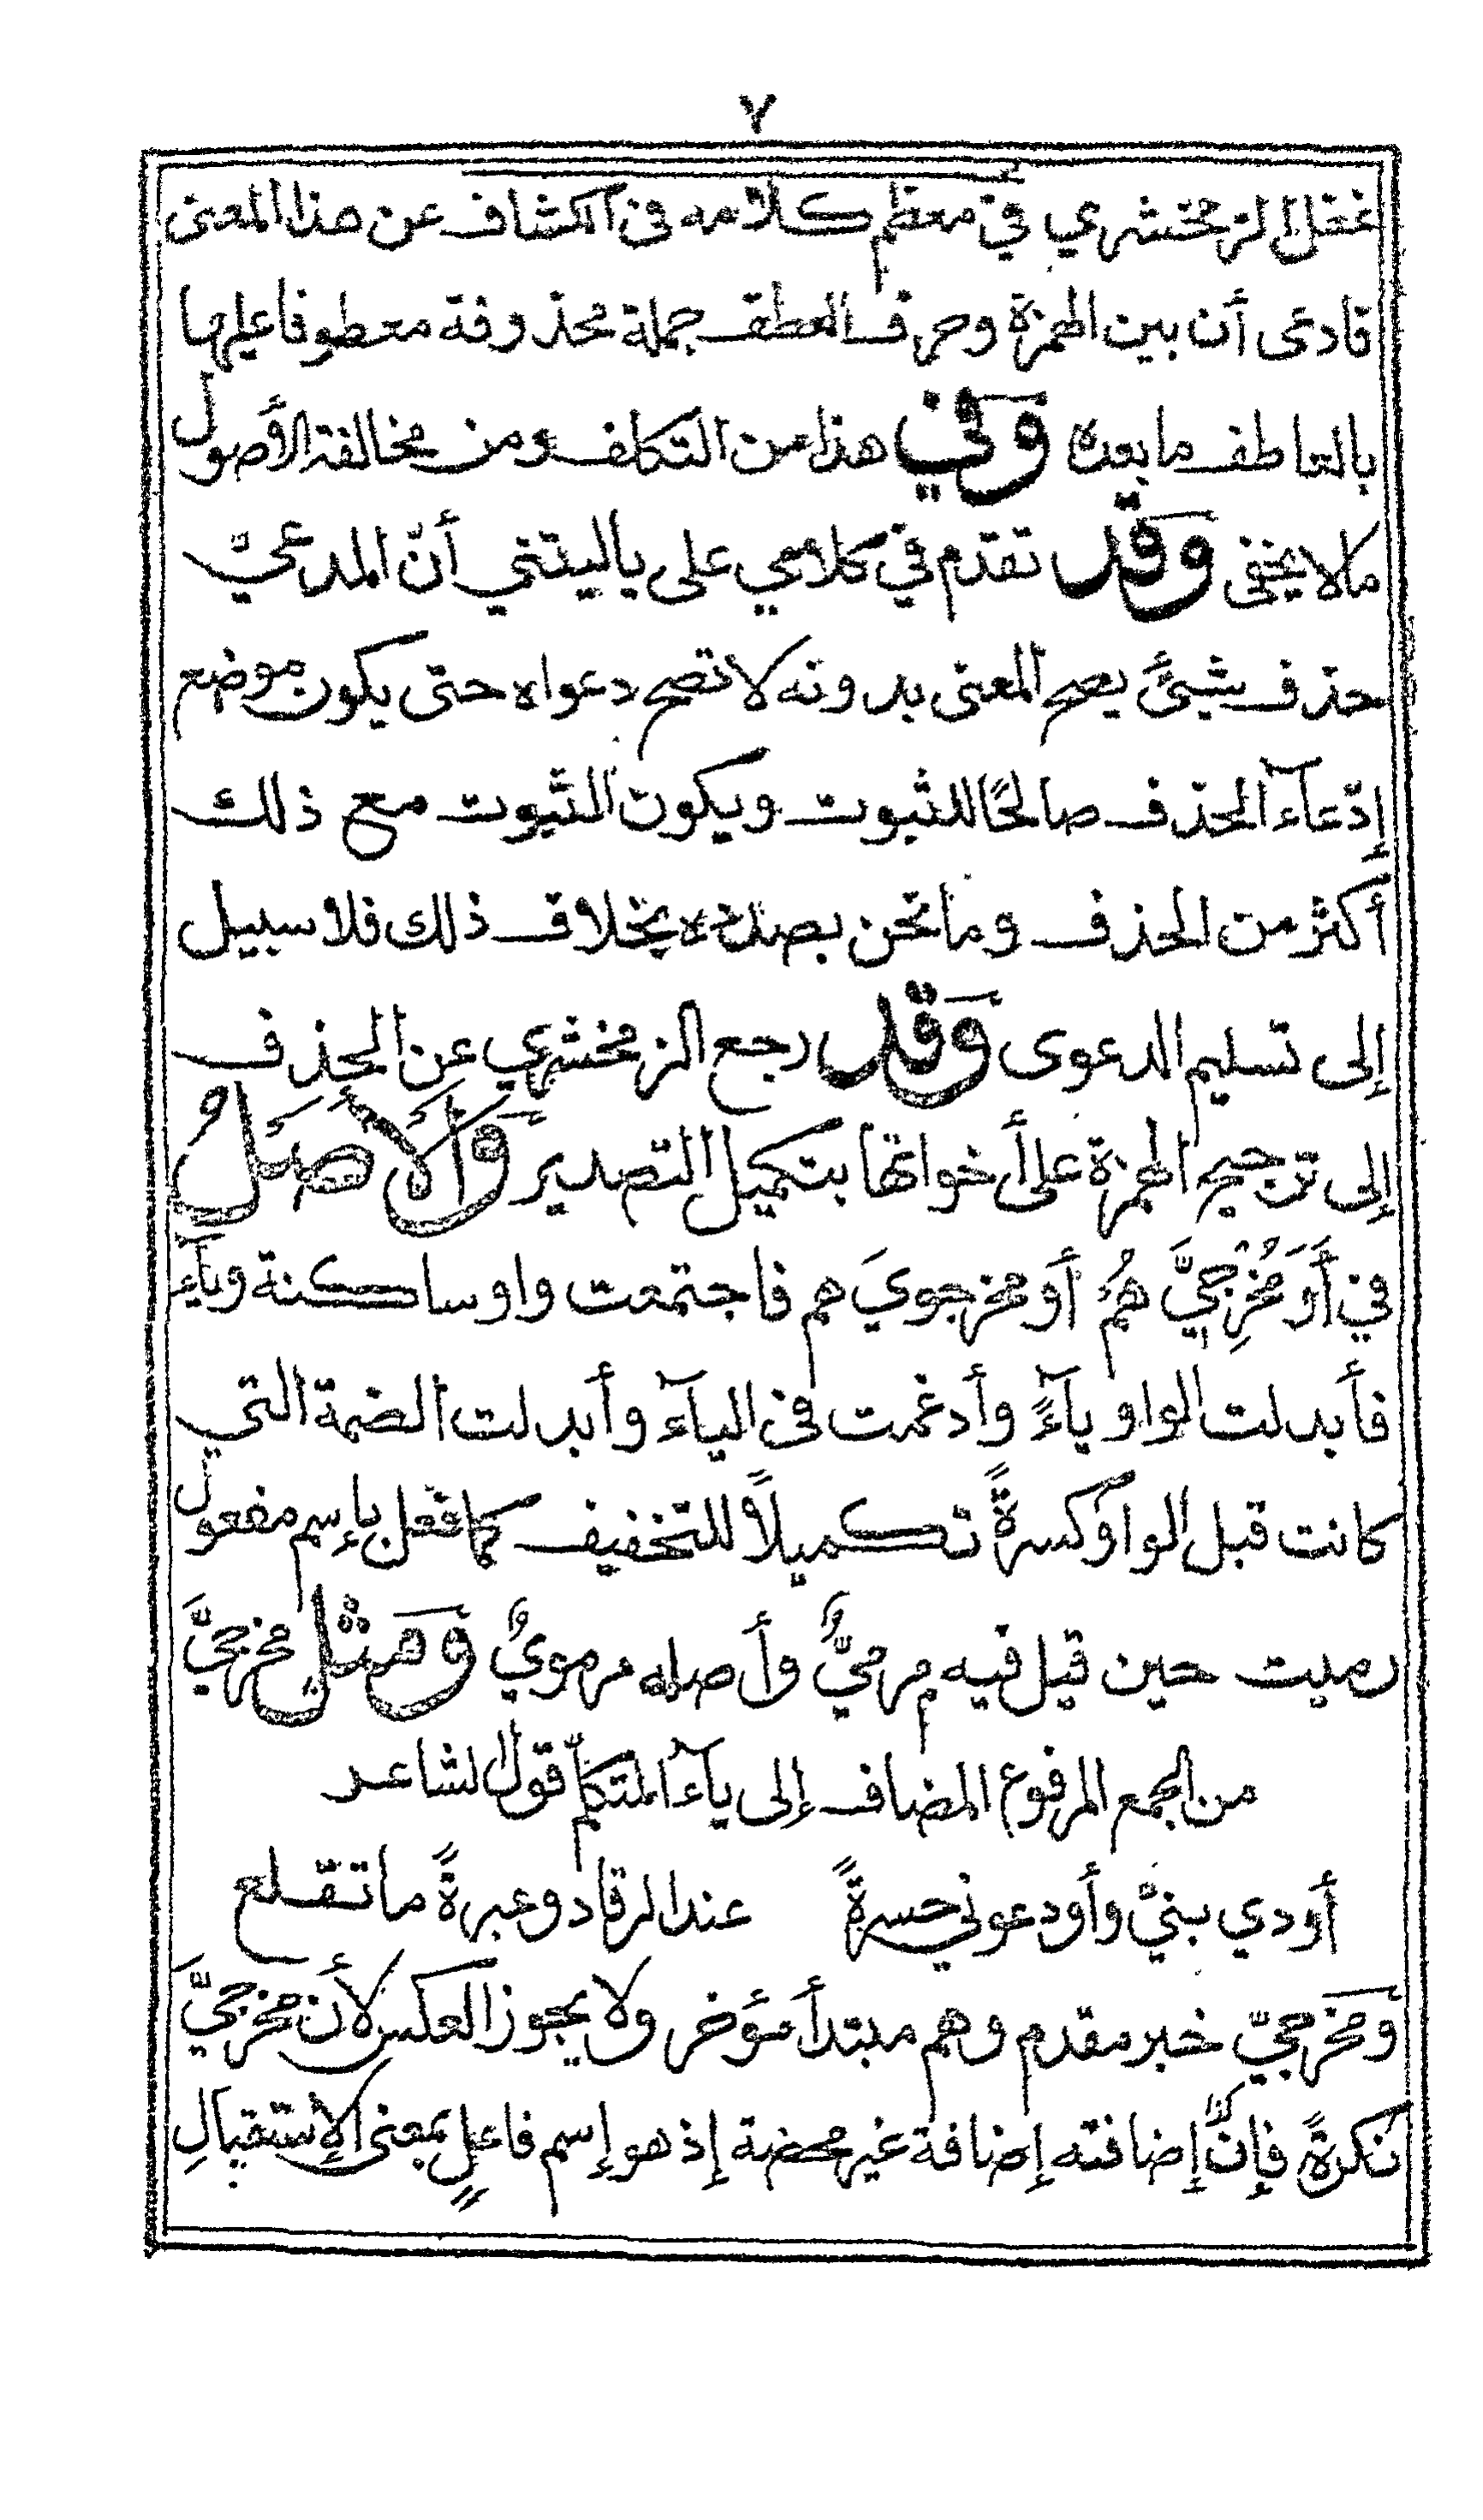 ٧
غفل الزمخشري في معظم كلامه في الكشاف عن هذا المعنى
فادعى أن بين الهمزة وحرف العطف جملة محذوفة معطوفا عليها
بالعاطف ما بعده وَفي هذا من التكلف ومن مخالفة الأُصول
ما لا يخفى وَقد تقدم في كلامي على ياليتني أنّ المدعيّ
حذف شيئً يصح المعنى بدونه لا تصح دعواه حتى يكون موضع
إدّعآء الحذف صالحًا للثبوت ويكون الثبوت مع ذلك
أكثر من الحذف وما نحن بصدده بخلاف ذلك فلا سبيل
إلى تسليم الدعوى وَقد رجع الزمخشري عن الحذف
إلى ترجيح الهمزة على أخواتها بتكميل التصدير وَالأَصَلُ
في أَوَ مُخْرِجيَّ هُمُ أو مخرجويَ هم فاجتمعت واو ساكنة ويآء
فأبدلت الواو يآءً وأدغمت في اليآء وأبدلت الضمة التي
كانت قبل الواو كسرةً تكميلاً للتخفيف كما فعل بإسم مفعول
رميت حين قيل فيه مرميٌّ وأصله مرمويٌ وَمثل مخرجيَّ
من الجمع المرفوع المضاف إلى يآء المتكلّم قول الشاعر
أودي بنيَّ وأودعوني حسرةً عند الرقاد وعبرةً ما تقلع
وَمخرجيّ خبر مقدم وهم مبتدأ مؤخر ولا يجوز العكس لأن مخرجيَّ
نكرةً فإنَّ إضافته إضافة غير محضة إذ هو إسم فاعلٍ بمعنى الإستقبالِ